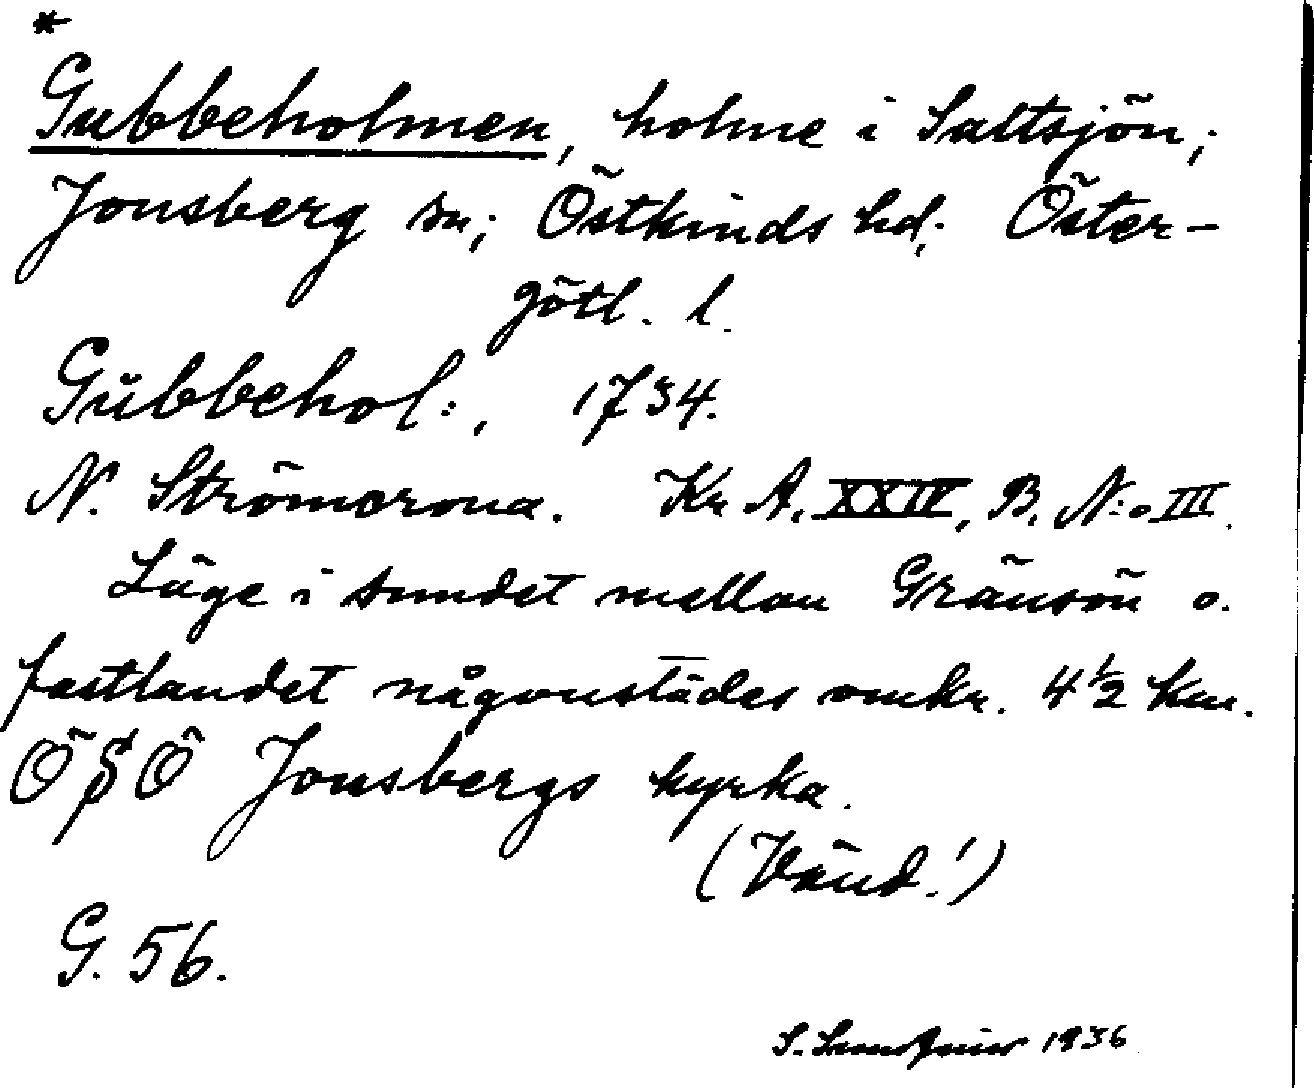 *
Gubbeholmen, holme i Saltsjön;
Jonsberg sn; Östkinds hd; Öster-
götl. l.
Gubbehol:, 1734.
N. Strömcrona. Kr A. XXIV, B. N:o III.
Läge i sundet mellan Gränsön o.
fastlandet någonstädes omkr. 4 1/2 km.
Ö S Ö Jonsbergs kyrka.
(Vänd!)
G. 56.
S. 1936